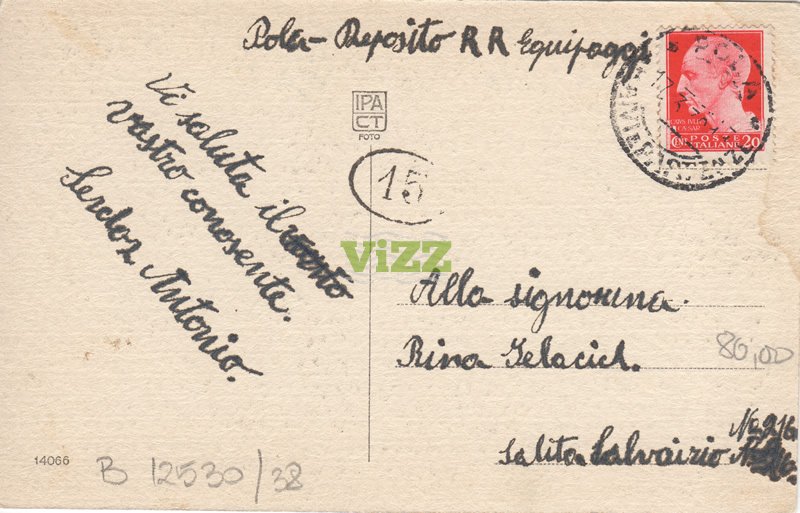 Pola - Deposito R R Equipaggi
Vi saluta il
vostro conosente.
Serdoz Antonio.
IPA
CT
FOTO
15
POLA
POSTE
ITALIANE
CENT 20
ViZZ
Alla signorina.
Rina Jelacich.
80,00
Salita
No 216
14066
B 12530/38